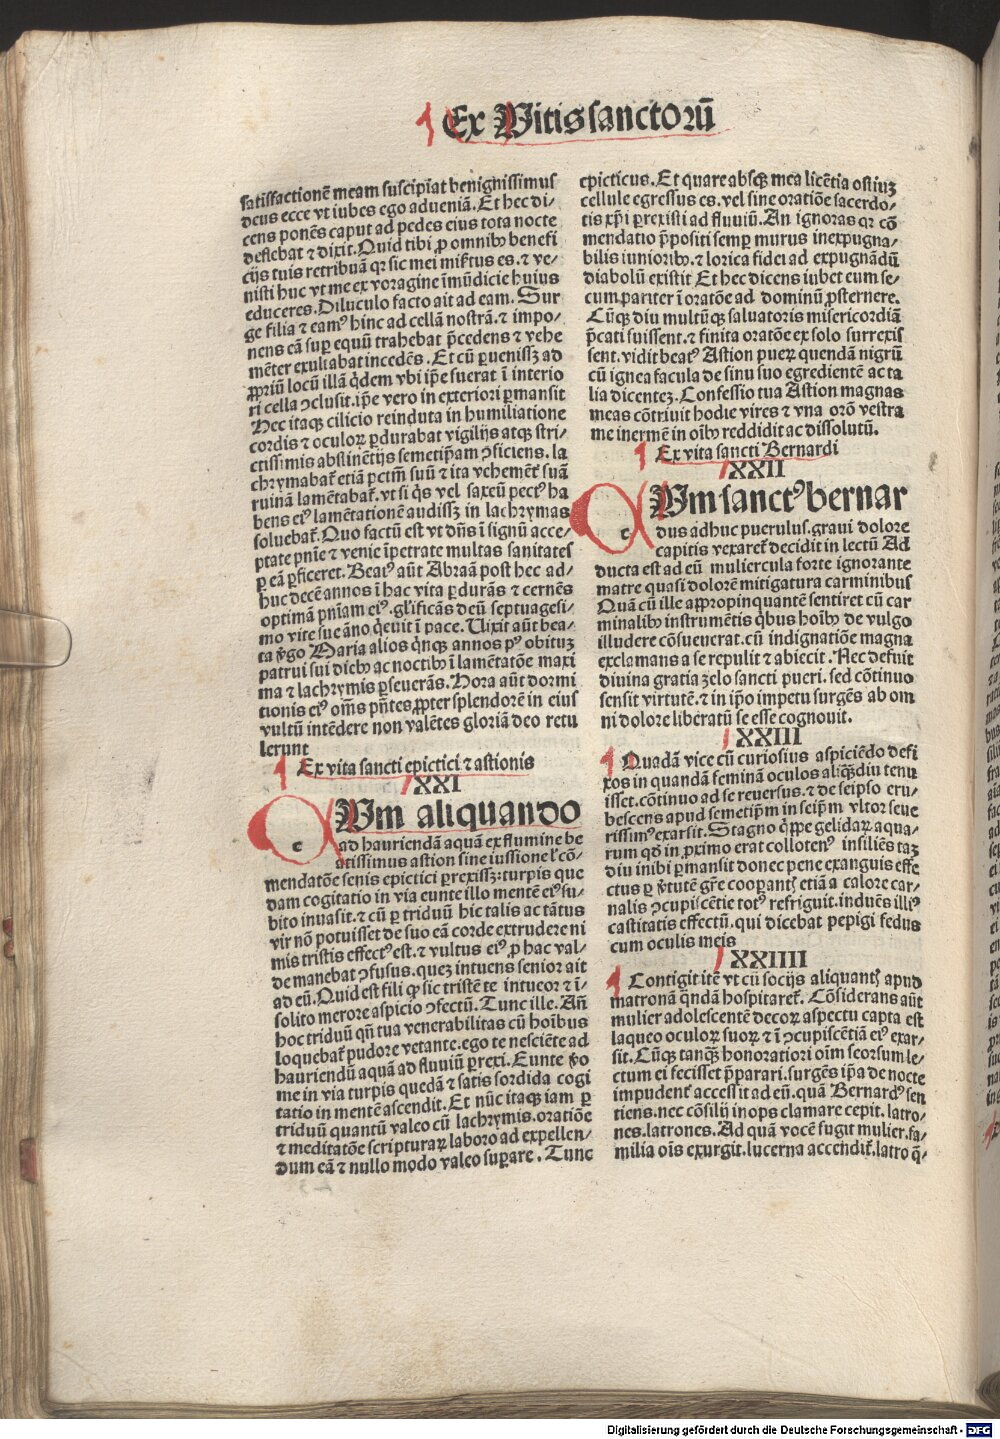 Ex Vitis sanctorū
satisfactionē meam suscipiat benignissimus
deus ecce vt iubes ego adueniā. Et hec di/
cens ponēs caput ad pedes eius tota nocte
deflebat ⁊ dixit. Quid tibi ꝓ omnibꝰ benefi
cijs tuis retribuā qꝛ sic mei miſtus es. ⁊ ve/
nisti huc vt me ex voragine īmūdicie huius
educeres. Diluculo facto ait ad eam. Sur
ge filia ⁊ eamꝰ hinc ad cellā nostrā. ⁊ impo/
nens eā suꝑ equū trahebat p̄cedens ⁊ vehe
mēter exultabat incedēs. Et cū ꝑuenissꝫ ad
ꝓpriū locū illā q̇dem vbi ip̄e fuerat ī interio
ri cella ꝯclusit. ip̄e vero in exteriori ꝑmansit
Hec itaqꝫ cilicio reinduta in humiliatione
cordis ⁊ oculoꝝ ꝑdurabat vigilijs atqꝫ stri/
ctissimis abstinētijs semetip̄am ꝯficiens. la
chrymabat᷑ etiā pctm̄ suū ⁊ ita vehemēt᷑ suā
ruinā lamētabat᷑. vt si q̇s vel saxeū pectꝰ ha
bens eiꝰ lamētationē audissꝫ in lachrymas
soluebat᷑. Quo factū est vt dn̄s ī signū acce/
ptate pn̄ie ⁊ venie īpetrate multas sanitates
ꝑ eā ꝑficeret. Beatꝰ aūt Abraā post hec ad/
huc decē annos ī hac vita ꝑdurās ⁊ cernēs
optimā pn̄iam eiꝰ. gl̄ificās deū septuagesi/
mo vite sue āno q̇euit ī pace. Uixit aūt bea/
ta ꝟgo Maria alios q̇nqꝫ annos pꝰ obituꝫ
patrui sui diebꝰ ac noctibꝰ ī lamētatōe maxi
ma ⁊ lachrymis ꝑseuerās. Hora aūt dormi
tionis eiꝰ om̄s pn̄tes ꝓpter splendorē in eius
vultū intēdere non valētes gloriā deo retu
lerunt
Ex vita sancti epictici ⁊ astionis
XXI
c Um aliquando
ad hauriendā aquā ex flumine be
atissimus astion sine iussione l᷑ cō/
mendatōe senis epictici ꝑrexissꝫ: turpis que
dam cogitatio in via eunte illo mentē eiꝰ su/
bito inuasit. ⁊ cū ꝑ triduū hic talis ac tātus
vir nō potuisset de suo eā corde extrudere ni
mis tristis effectꝰ est. ⁊ vultus eiꝰ ꝓ hac val/
de manebat ꝯfusus. queꝫ intuens senior ait
ad eū. Quid est fili ꝙ sic tristē te intueor ⁊ ī/
solito merore aspicio ꝯfectū. Tunc ille. An̄
hoc triduū qn̄ tua venerabilitas cū hoībus
loquebat᷑ pudore vetante. ego te nesciēte ad
hauriendū aquā ad fluuiū ꝑrexi. Eunte ꝟo
me in via turpis quedā ⁊ satis sordida cogi
tatio in mentē ascendit. Et nūc itaqꝫ iam ꝑ
triduū quantū valeo cū lachrymis. oratiōe
⁊ meditatōe scripturaꝝ laboro ad expellen/
dum eā ⁊ nullo modo valeo suꝑare. Tunc
epicticus. Et quare absqꝫ mea licētia ostiuꝫ
cellule egressus es. vel sine oratiōe sacerdo/
tis xp̄i ꝑrexisti ad fluuiū. An ignoras qꝛ cō
mendatio p̄positi semꝑ murus inexpugna/
bilis iunioribꝰ. ⁊ lorica fidei ad expugnādū
diabolū existit Et hec dicens iubet eum se/
cum pariter ī oratōe ad dominū ꝓsternere.
Cūqꝫ diu multūqꝫ saluatoris misericordiā
p̄cati fuissent. ⁊ finita oratōe ex solo surrexis
sent. vidit beatꝰ Astion pueꝝ quendā nigrū
cū ignea facula de sinu suo egredientē ac ta
lia dicenteꝫ. Confessio tua Astion magnas
meas cōtriuit hodie vires ⁊ vna orō vestra
me inermē in oībꝰ reddidit ac dissolutū.
Ex vita sancti Bernardi
XXII
c Um sanctꝰ bernar
dus adhuc puerulus. graui dolore
capitis vexaret᷑ decidit in lectū Ad
ducta est ad eū muliercula forte ignorante
matre quasi dolorē mitigatura carminibus
Quā cū ille appropinquantē sentiret cū car
minalibꝰ instrumētis q̇bus hoībꝰ de vulgo
illudere cōsueuerat. cū indignatiōe magna
exclamans a se repulit ⁊ abiecit. Nec defuit
diuina gratia zelo sancti pueri. sed cōtinuo
sensit virtutē. ⁊ in ip̄o impetu surgēs ab om
ni dolore liberatū se esse cognouit.
XXIII
Quadā vice cū curiosius aspiciēdo defi
xos in quandā feminā oculos aliqꝫdiu tenu
isset. cōtinuo ad se reuersus. ⁊ de seipso eru/
bescens apud semetip̄m in seip̄m vltor seue
rissimꝰ exarsit. Stagno q̇ppe gelidaꝝ aqua/
rum qd̄ in ꝓximo erat collotenꝰ insiliēs taꝫ
diu inibi ꝑmansit donec pene exanguis effe
ctus ꝑ ꝟtutē gr̄e cooꝑantꝭ etiā a calore car/
nalis ꝯcupiscētie totꝰ refriguit. induēs illiꝰ
castitatis effectū. qui dicebat pepigi fedus
cum oculis meis
XXIIII
Contigit itē vt cū socijs aliquantꝭ apud
matronā qn̄dā hospitaret᷑. Cōsiderans aūt
mulier adolescentē decoꝝ aspectu capta est
laqueo oculoꝝ suoꝝ ⁊ ī ꝯcupiscētiā eiꝰ exar/
sit. Cūqꝫ tanqꝫ honoratiori oīm seorsum le/
ctum ei fecisset p̄parari. surgēs ip̄a de nocte
impudent᷑ accessit ad eū. quā Bernardꝰ sen
tiens. nec cōsilij inops clamare cepit. latro/
nes. latrones. Ad quā vocē fugit mulier. fa/
milia oīs exurgit. lucerna accendit᷑. latro q̄/
Digitalisierung gefördert durch die Deutsche Forschungsgemeinschaft - DFG